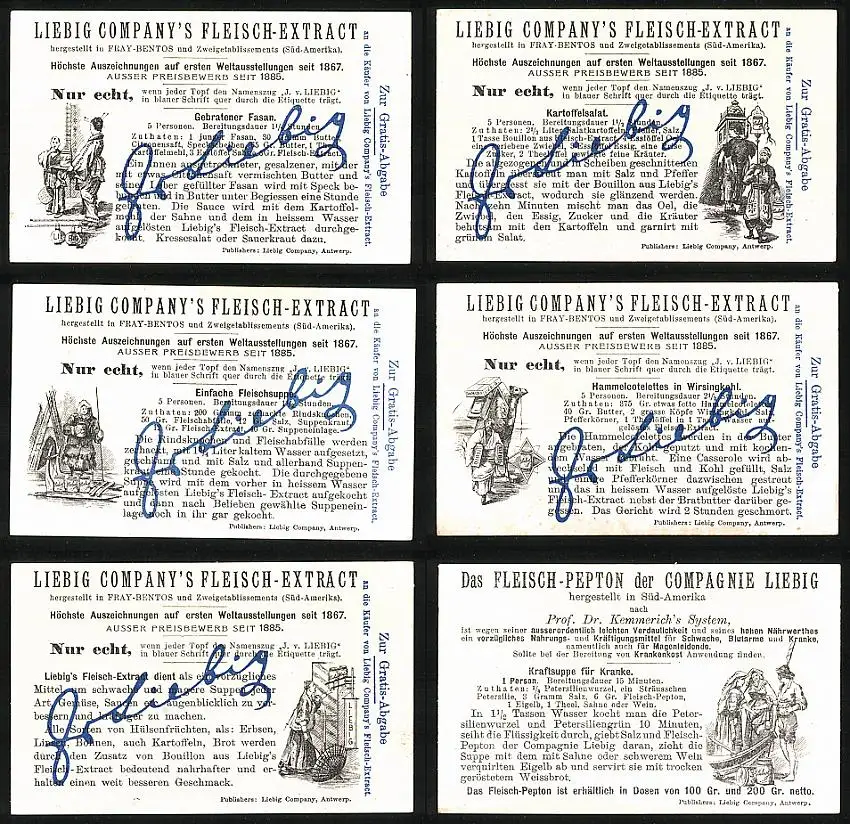 LIEBIG COMPANY'S FLEISCH-EXTRACT
hergestellt in FRAY-BENTOS und Zweigetablissements (Süd-Amerika).
Höchste Auszeichnungen auf ersten Weltausstellungen seit 1867.
AUSSER PREISBEWERB SEIT 1885.
Nur echt, wenn jeder Topf den Namenszug „J. v. LIEBIG“
in blauer Schrift quer durch die Etiquette trägt.
Gebratener Fasan.
5 Personen. Bereitungsdauer 1½ Stunden.
Zuthaten: 1 junger Fasan, 30 Butter,
Citronensaft, Speck, Gr. Butter, 1 Th.
Kartoffelmehl, 3 Sahne, Gr. Fleisch-Extract.
Einen innen ausgetrockneter, gesalzener, mit der
mit Citronensaft vermischten Butter und
einer gefüllter Fasan wird mit Speck be-
bunden und in Butter unter Begiessen eine Stunde
gebraten. Die Sauce wird mit dem Kartoffel-
mehl, der Sahne und dem in heissem Wasser
aufgelösten Liebig's Fleisch-Extract durchge-
kocht. Kressesalat oder Sauerkraut dazu.
Publishers: Liebig Company, Antwerp.
Zur Gratis-Abgabe
an die Käufer von Liebig Company's Fleisch-Extract.
JvLiebig
LIEBIG COMPANY'S FLEISCH-EXTRACT
hergestellt in FRAY-BENTOS und Zweigetablissements (Süd-Amerika).
Höchste Auszeichnungen auf ersten Weltausstellungen seit 1867.
AUSSER PREISBEWERB SEIT 1885.
Nur echt, wenn jeder Topf den Namenszug „J. v. LIEBIG“
in blauer Schrift quer durch die Etiquette trägt.
Kartoffelsalat.
5 Personen. Bereitungsdauer
Zuthaten: 2½ Liter Salatkartoffeln, Pfeffer, Salz,
1 Tasse Bouillon aus Liebig's Fleisch-Extract,
eine geriebene Zwiebel, Essig, eine
Zucker, 2 feine Kräuter.
Die abgezogenen, in Scheiben geschnittenen
Kartoffeln man mit Salz und Pfeffer
und übergiesst sie mit der Bouillon aus Liebig's
Fleisch-Extract, wodurch sie glänzend werden.
Nach zehn Minuten mischt man das Oel, die
Zwiebel, den Essig, Zucker und die Kräuter
behutsam mit den Kartoffeln und garnirt mit
grünem Salat.
Publishers: Liebig Company, Antwerp.
Zur Gratis-Abgabe
an die Käufer von Liebig Company's Fleisch-Extract.
JvLiebig
LIEBIG COMPANY'S FLEISCH-EXTRACT
hergestellt in FRAY-BENTOS und Zweigetablissements (Süd-Amerika).
Höchste Auszeichnungen auf ersten Weltausstellungen seit 1867.
AUSSER PREISBEWERB SEIT 1885.
Nur echt, wenn jeder Topf den Namenszug „J. v. LIEBIG“
in blauer Schrift quer durch die Etiquette trägt.
Einfache Fleischsuppe.
5 Personen. Bereitungsdauer Stunden.
Zuthaten: 200 Rindsknochen,
Gr. Fleischabfälle, 12 Salz, Suppenkraut,
Gr. Fleisch-Extract, Gr. Suppeneinlage.
Die Rindsknochen und Fleischabfälle werden
Liter kaltem Wasser aufgesetzt,
und mit Salz und allerhand Suppen-
kraut Stunde gekocht. Die durchgegebene
wird mit dem vorher in heissem Wasser
aufgelösten Liebig's Fleisch-Extract aufgekocht
und dann nach Belieben gewählte Suppenein-
lage noch in ihr gar gekocht.
Publishers: Liebig Company, Antwerp.
Zur Gratis-Abgabe
an die Käufer von Liebig Company's Fleisch-Extract.
JvLiebig
LIEBIG COMPANY'S FLEISCH-EXTRACT
hergestellt in FRAY-BENTOS und Zweigetablissements (Süd-Amerika).
Höchste Auszeichnungen auf ersten Weltausstellungen seit 1867.
AUSSER PREISBEWERB SEIT 1885.
Nur echt, wenn jeder Topf den Namenszug „J. v. LIEBIG“
in blauer Schrift quer durch die Etiquette trägt.
Hammelcotelettes in Wirsingkohl.
5 Personen. Bereitungsdauer Stunden.
Zuthaten: 375 Gr. etwas fette Hammelcotelettes,
40 Gr. Butter, 2 grosse Köpfe Wirsingkohl, Salz,
Pfefferkörner, 1 Theel. in 1 Tasse Wasser
Hammelcotelettes werden in der Butter
gebraten, der Kohl geputzt und mit kochen-
dem Wasser Eine Casserole wird ab-
wechselnd mit Fleisch und Kohl gefüllt, Salz
und Pfefferkörner dazwischen gestreut
und das in heissem Wasser aufgelöste Liebig's
Fleisch-Extract nebst der Bratbutter darüber ge-
gossen. Das Gericht wird 2 Stunden geschmort.
Publishers: Liebig Company, Antwerp.
Zur Gratis-Abgabe
an die Käufer von Liebig Company's Fleisch-Extract.
JvLiebig
LIEBIG COMPANY'S FLEISCH-EXTRACT
hergestellt in FRAY-BENTOS und Zweigetablissements (Süd-Amerika).
Höchste Auszeichnungen auf ersten Weltausstellungen seit 1867.
AUSSER PREISBEWERB SEIT 1885.
Nur echt, wenn jeder Topf den Namenszug „J. v. LIEBIG“
in blauer Schrift quer durch die Etiquette trägt.
Liebig's Fleisch-Extract dient als vorzügliches
Mittel, um schwache und magere Suppen, jede
Art Gemüse, Saucen augenblicklich zu ver-
bessern und kräftiger zu machen.
Alle Sorten von Hülsenfrüchten, als: Erbsen,
Linsen, Bohnen, auch Kartoffeln, Brot werden
durch den Zusatz von Bouillon aus Liebig's
Fleisch-Extract bedeutend nahrhafter und er-
halten einen weit besseren Geschmack.
Publishers: Liebig Company, Antwerp.
Zur Gratis-Abgabe
an die Käufer von Liebig Company's Fleisch-Extract.
JvLiebig
Das FLEISCH-PEPTON der COMPAGNIE LIEBIG
hergestellt in Süd-Amerika
nach
Prof. Dr. Kemmerich's System,
ist wegen seiner ausserordentlich leichten Verdaulichkeit und seines hohen Nährwerthes
ein vorzügliches Nahrungs- und Kräftigungsmittel für Schwache, Blutarme und Kranke,
namentlich auch für Magenleidende.
Sollte bei der Bereitung von Krankenkost Anwendung finden.
Kraftsuppe für Kranke.
1 Person. Bereitungsdauer 15 Minuten.
Zuthaten: ¼ Petersilienwurzel, ein Sträusschen
Petersilie, 3 Gramm Salz, 6 Gr. Fleisch-Pepton,
1 Eigelb, 1 Theel. Sahne oder Wein.
In 1½ Tassen Wasser kocht man die Peter-
silienwurzel und Petersiliengrün 10 Minuten,
seiht die Flüssigkeit durch, giebt Salz und Fleisch-
Pepton der Compagnie Liebig daran, zieht die
Suppe mit dem mit Sahne oder schwerem Wein
verquirlten Eigelb ab und servirt sie mit trocken
geröstetem Weissbrot.
Das Fleisch-Pepton ist erhältlich in Dosen von 100 Gr. und 200 Gr. netto.
Publishers: Liebig Company, Antwerp.